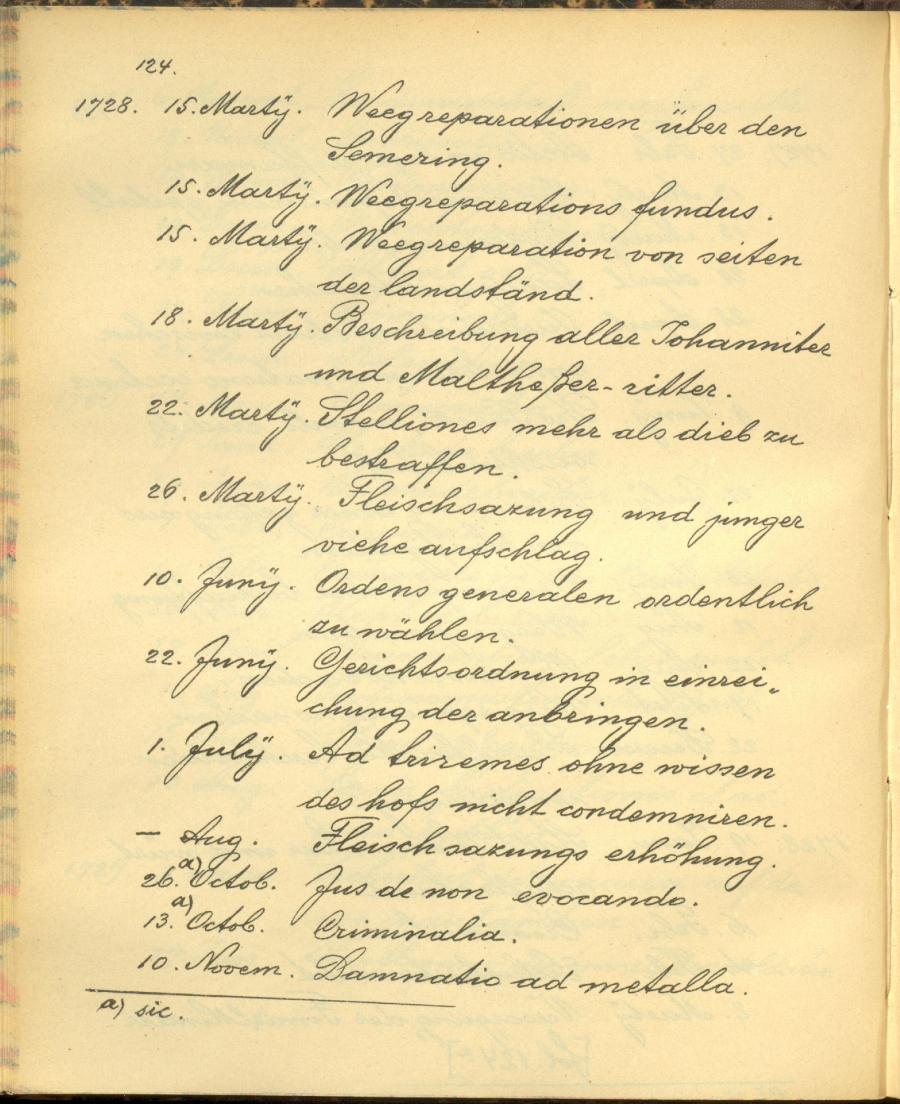 124.
1728. 15. Martÿ. Weegreparationen über den
Semering.
15. Martÿ. Weegreparations fundus.
15. Martÿ. Weegreparation von seiten
der landständ.
18. Martÿ. Beschreibung aller Johanniter
und Maltheßer-ritter.
22. Martÿ. Stelliones mehr als dieb zu
bestraffen.
26. Martÿ. Fleischsazung und junger
viehe aufschlag.
10. Junÿ. Ordens generalen ordentlich
zu wählen.
22. Junÿ. Gerichtsordnung in einrei„
chung der anbringen.
1. Julÿ. Ad triremes ohne wissen
des hofs nicht condemniren.
— Aug. Fleischsazungs erhöhung.
26.a) Octob. Jus de non evocando.
13.a) Octob. Criminalia.
10. Novem. Damnatio ad metalla.
a) sic.